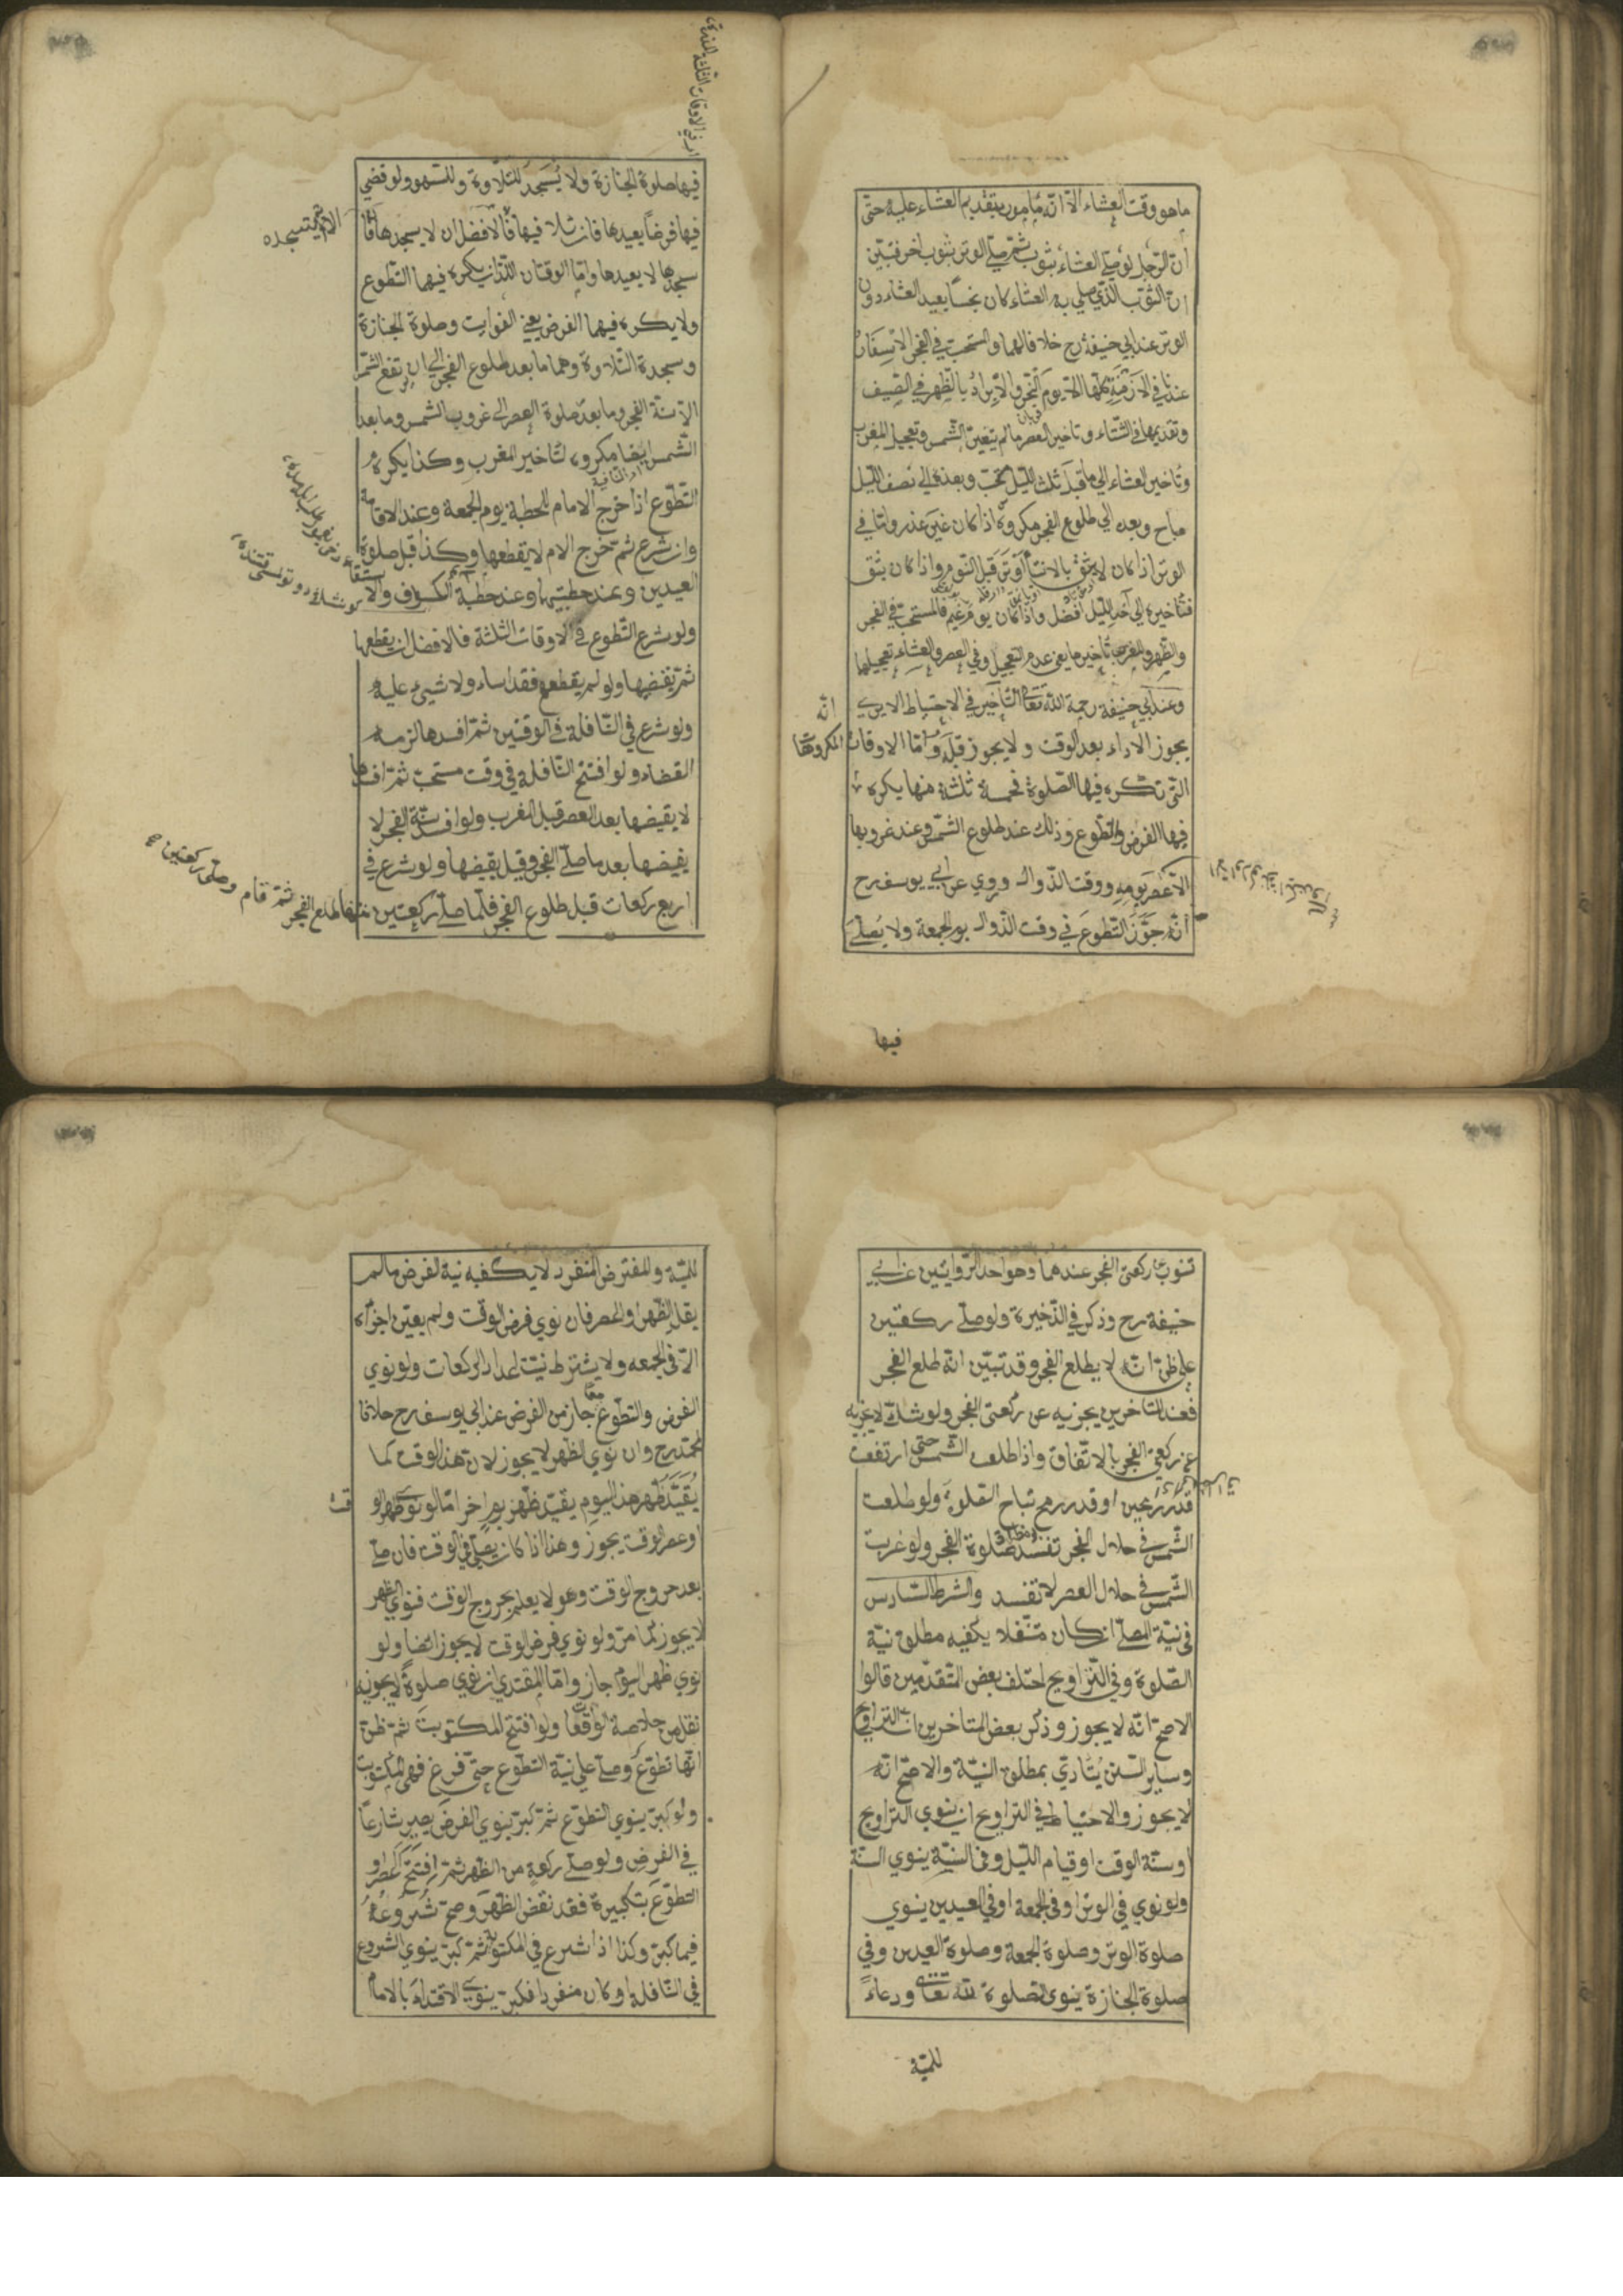 ما هو وقت العشاء الا انه مامور بتقديم العشاء عليه حتى
ان الرجل لو صلى العشاء بثوب ثم صلى الوتر بثوب اخر فتبين
ان الثوب الذي صلي به العشاء كان نجسا يعيد العشاء دون
الوتر عند ابي حنيفة رح خلافا لهما والمستحب في الفجر الاسفار
عندنا في الازمنة كلها الا يوم النحر والابراد بالظهر في الصيف
وتقديمها في الشتاء وتاخير العصر مالم يتغير الشمس وتعجيل المغرب
وتاخير العشاء الي ما قبل ثلث الليل مستحب وبعده الي نصف الليل
مباح وبعده الي طلوع الفجر مكروه اذا كان غير عذر واما في
الوتر اذا كان لا يثق بالانتباه اوتر قبل النوم واذا كان يثق
فتاخيره الي آخر الليل افضل واذا كان يوم غيم فالمستحب في الفجر
والظهر والمغرب تاخيرها يعني عدم التعجيل وفي العصر والعشاء تعجيلها
وعند ابي حنيفة رحمة الله تعالى التاخير في الاحتياط الا يرى انه
يجوز الاداء بعد الوقت ولا يجوز قبله واما الاوقات المكروهة
التى تكره فيها الصلوة فخمسة ثلثة منها يكره
فيها الفرض والتطوع وذلك عند طلوع الشمس وعند غروبها
الا عصر يومه ووقت الزوال وروي عن ابي يوسف رح
انه جوز التطوع في وقت الزوال يوم الجمعة ولا يصلى
فيها
فيها صلوة الجنازة ولا يسجد للتلاوة وللسهو ولو قضي
فيها فرضا يعيدها فان تلا فيها فالافضل ان لا يسجدها فان
سجدها لا يعيدها واما الوقتان اللذان يكره فيهما التطوع
ولا يكره فيهما الفرض يعني الفوايت وصلوة الجنازة
وسجدة التلاوة وهما ما بعد طلوع الفجر الي ان يرتفع الشمس
الا سنة الفجر وما بعد صلوة العصر الى غروب الشمس وما بعد
الشمس ايضا مكروه لتاخير المغرب وكذا يكره
التطوع اذا خرج الامام للخطبة يوم الجمعة وعند الاقامة
وان شرع ثم خرج الامام لا يقطعها وكذا قبل صلوة
العيدين وعند خطبتها وعند خطبة الكسوف والاستسقاء
ولو شرع التطوع في الاوقات الثلثة فالافضل ان يقطعها
ثم يقضيها ولو لم يقطع فقد اساء ولا شيء عليه
ولو شرع في النافلة في الوقتين ثم افسدها لزمه
القضاء ولو افتتح النافلة في وقت مستحب ثم افسدها
لا يقيضها بعد العصر قبل المغرب ولو افسد سنة الفجر لا
يقيضها بعد ما صلى الفجر وقيل يقيضها ولو شرع في
اربع ركعات قبل طلوع الفجر فلما صلى ركعتين منها طلع الفجر ثم قام وصلى ركعتين
تنوب عن ركعتي الفجر عندهما وهو احد الروايتين عن ابي
حنيفة رح وذكر في الذخيرة ولو صلى ركعتين
على ظن انه لا يطلع الفجر وقد تبين انه طلع الفجر
فعند المتاخرين يجزيه عن ركعتي الفجر ولو شك لا يجزيه
عن ركعتي الفجر بالاتفاق واذا طلعت الشمس حتى ارتفعت
قدر رمحين او قدر رمح تباح الصلوة ولو طلعت
الشمس في خلال الفجر تفسد صلوة الفجر ولو غربت
الشمس في خلال العصر لا تفسد والشرط السادس
في نية المصلي ان كان متنفلا يكفيه مطلق نية
الصلوة وفي التراويح اختلف بعض المتقدمين قالوا
الاصح انه لا يجوز وذكر بعض المتاخرين ان التراويح
وساير السنن يتادي بمطلق النية والاصح انه
لا يجوز والاحتياط في التراويح ان ينوي التراويح
او سنة الوقت او قيام الليل وفي السنة ينوي السنة
ولو نوي في الوتر او في الجمعة او في العيدين ينوي
صلوة الوتر وصلوة الجمعة وصلوة العيدين وفي
صلوة الجنازة ينوى الصلوة لله تعالى ودعاء
للميت
للميت وللمفترض المنفرد لا يكفيه نية لفرض مالم
يقل الظهر او العصر فان نوي فرض الوقت ولم يعين اجزاه
الا في الجمعه ولا يشترط نيت اعداد الركعات ولو نوي
الفرض والتطوع معا جاز من الفرض عند ابي يوسف رح خلافا
لمحمد رح وان نوي الظهر لا يجوز لان هذا الوقت كما
يقيد ظهر هذا اليوم يقيد ظهر يوم اخر اما لو نوى ظهر الوقت
او عصر الوقت يجوز وهذا اذا كان يصلي في الوقت فان صلى
بعد خروج الوقت وهو لا يعلم بخروج الوقت فنوي الظهر
لا يجوز كما مر ولو نوي فرض الوقت لا يجوز ايضا ولو
نوي ظهر اليوم جاز واما المقتدي ان نوي صلوة لا يجوزيه
نقل من خلاصة ولو افتتح المكتوبت ثم ظن
انها تطوع وصلى على نية التطوع حتى فرغ فهي المكتوبت
ولو كبر ينوي التطوع ثم كبر ينوي الفرض يصير شارعا
في الفرض ولو صلى ركعة من الظهر ثم افتتح العصر او
التطوع بتكبيرة فقد نقض الظهر وصح شروعه
فيما كبر وكذا اذا شرع في المكتوبة ثم كبر ينوي الشروع
في النافلة او كان منفردا فكبر ينوي الاقتداء بالامام